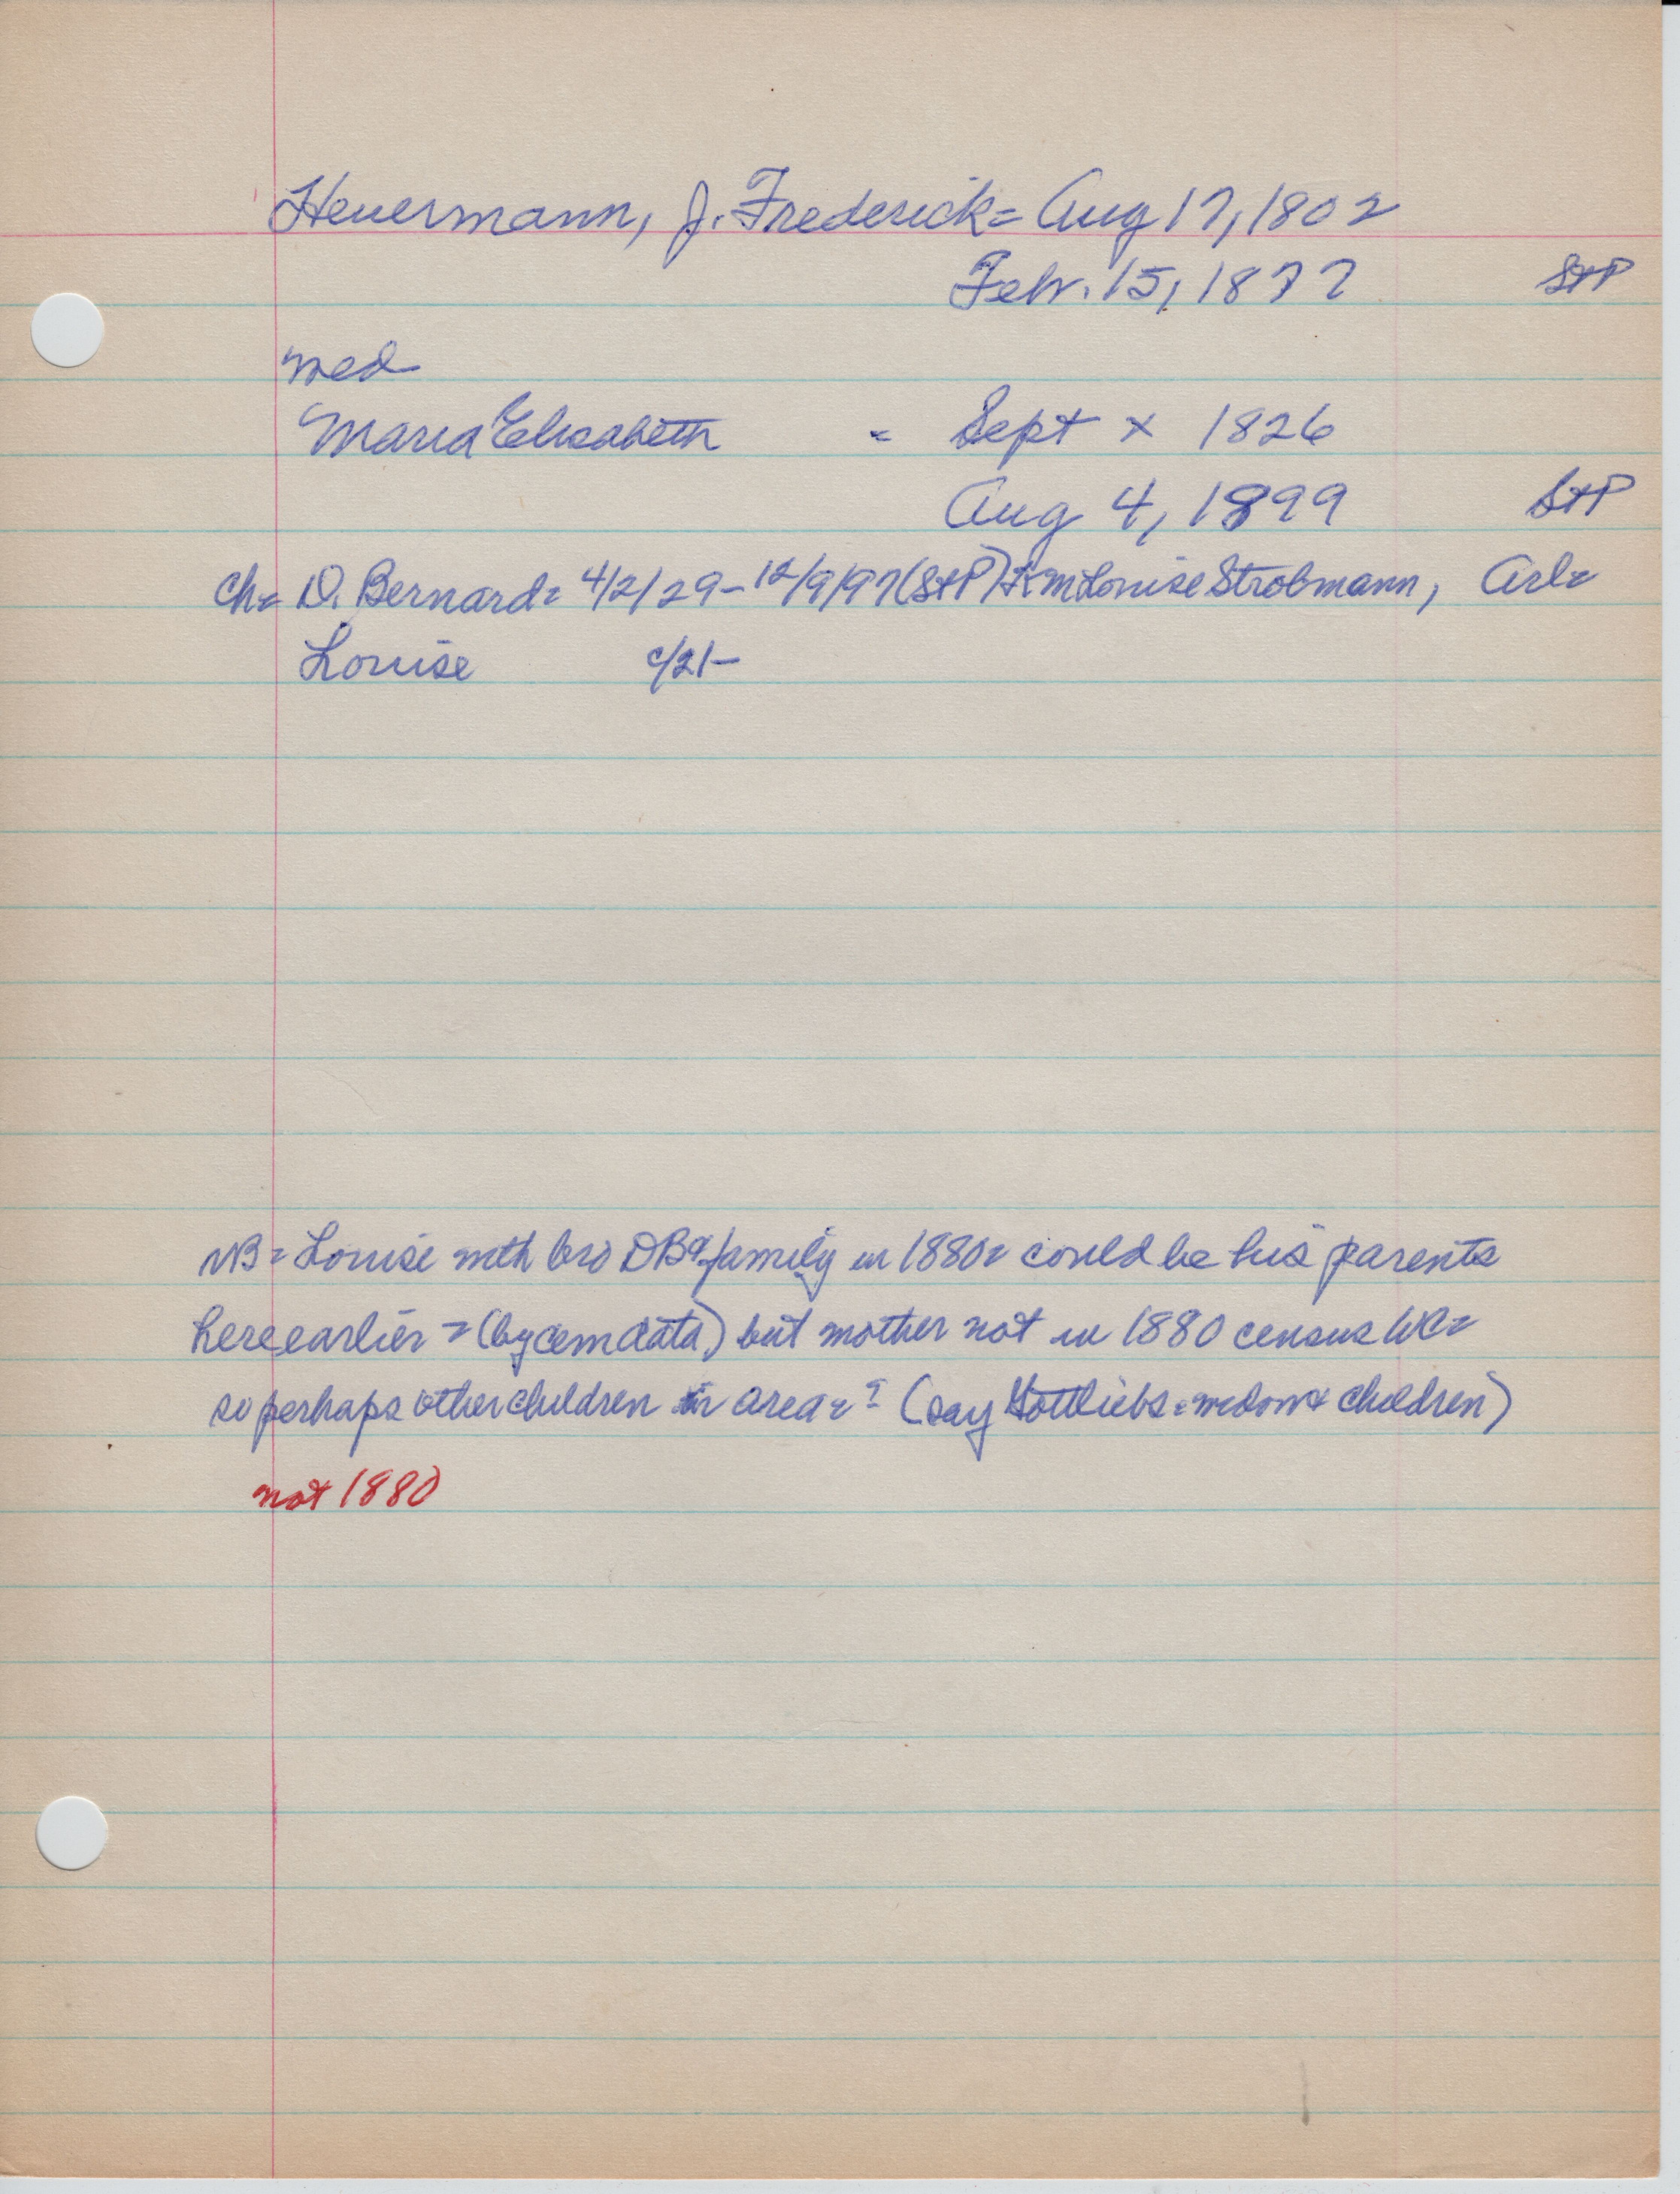 Heuermann, J. Frederick = Aug 17, 1802
Febr. 15, 1877 StP
wed
Maria Elisabeth = Sept x 1826
Aug 4, 1899 StP
ch = D. Bernard = 4/2/29 - 12/9/97 (StP) m Louise Strobmann, Arl =
Louise c/21 -
NB = Louise with bro DB & family in 1880 = could be his parents
here earlier = (by cem data) but mother not in 1880 census WC =
so perhaps other children in area = ? (say Gottliebs = widow & children)
not 1880